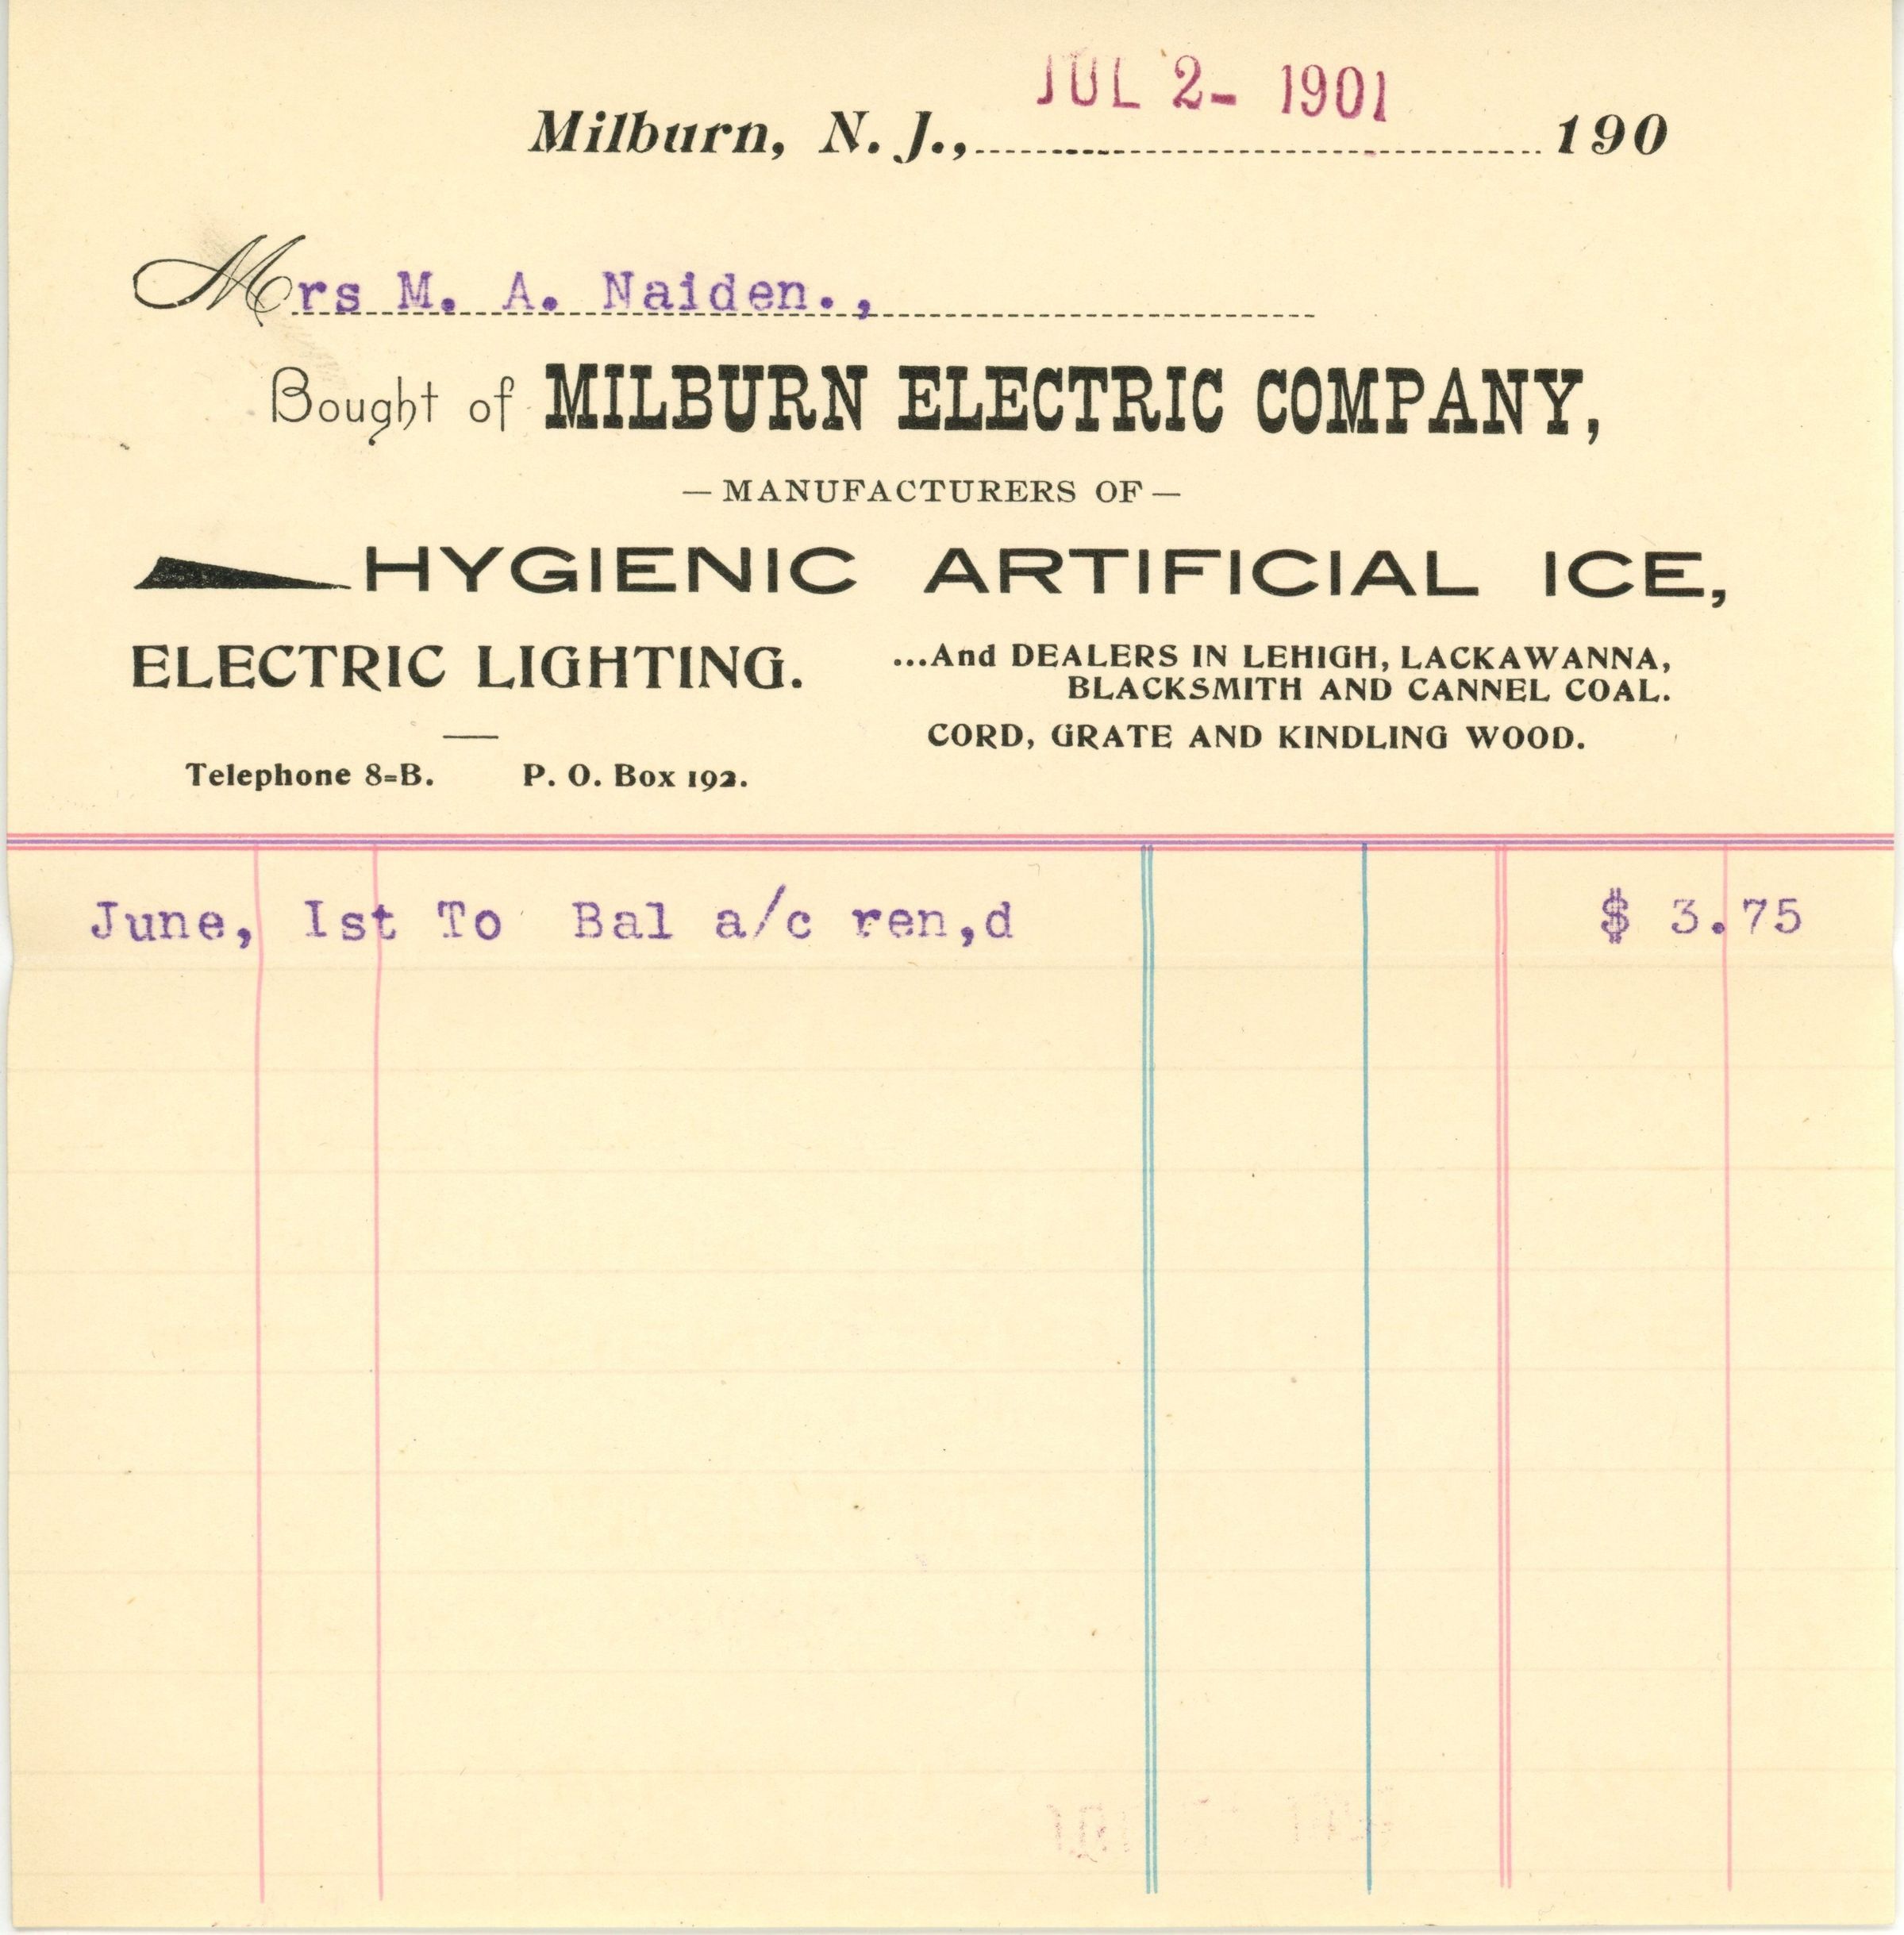 JUL 2- 1901
Milburn, N. J., 190
Mrs M. A. Naiden.,
Bought of MILBURN ELECTRIC COMPANY,
— MANUFACTURERS OF —
HYGIENIC ARTIFICIAL ICE,
ELECTRIC LIGHTING.
...And DEALERS IN LEHIGH, LACKAWANNA,
BLACKSMITH AND CANNEL COAL.
CORD, GRATE AND KINDLING WOOD.
Telephone 8=B. P. O. Box 192.
June, Ist To Bal a/c ren,d $ 3.75